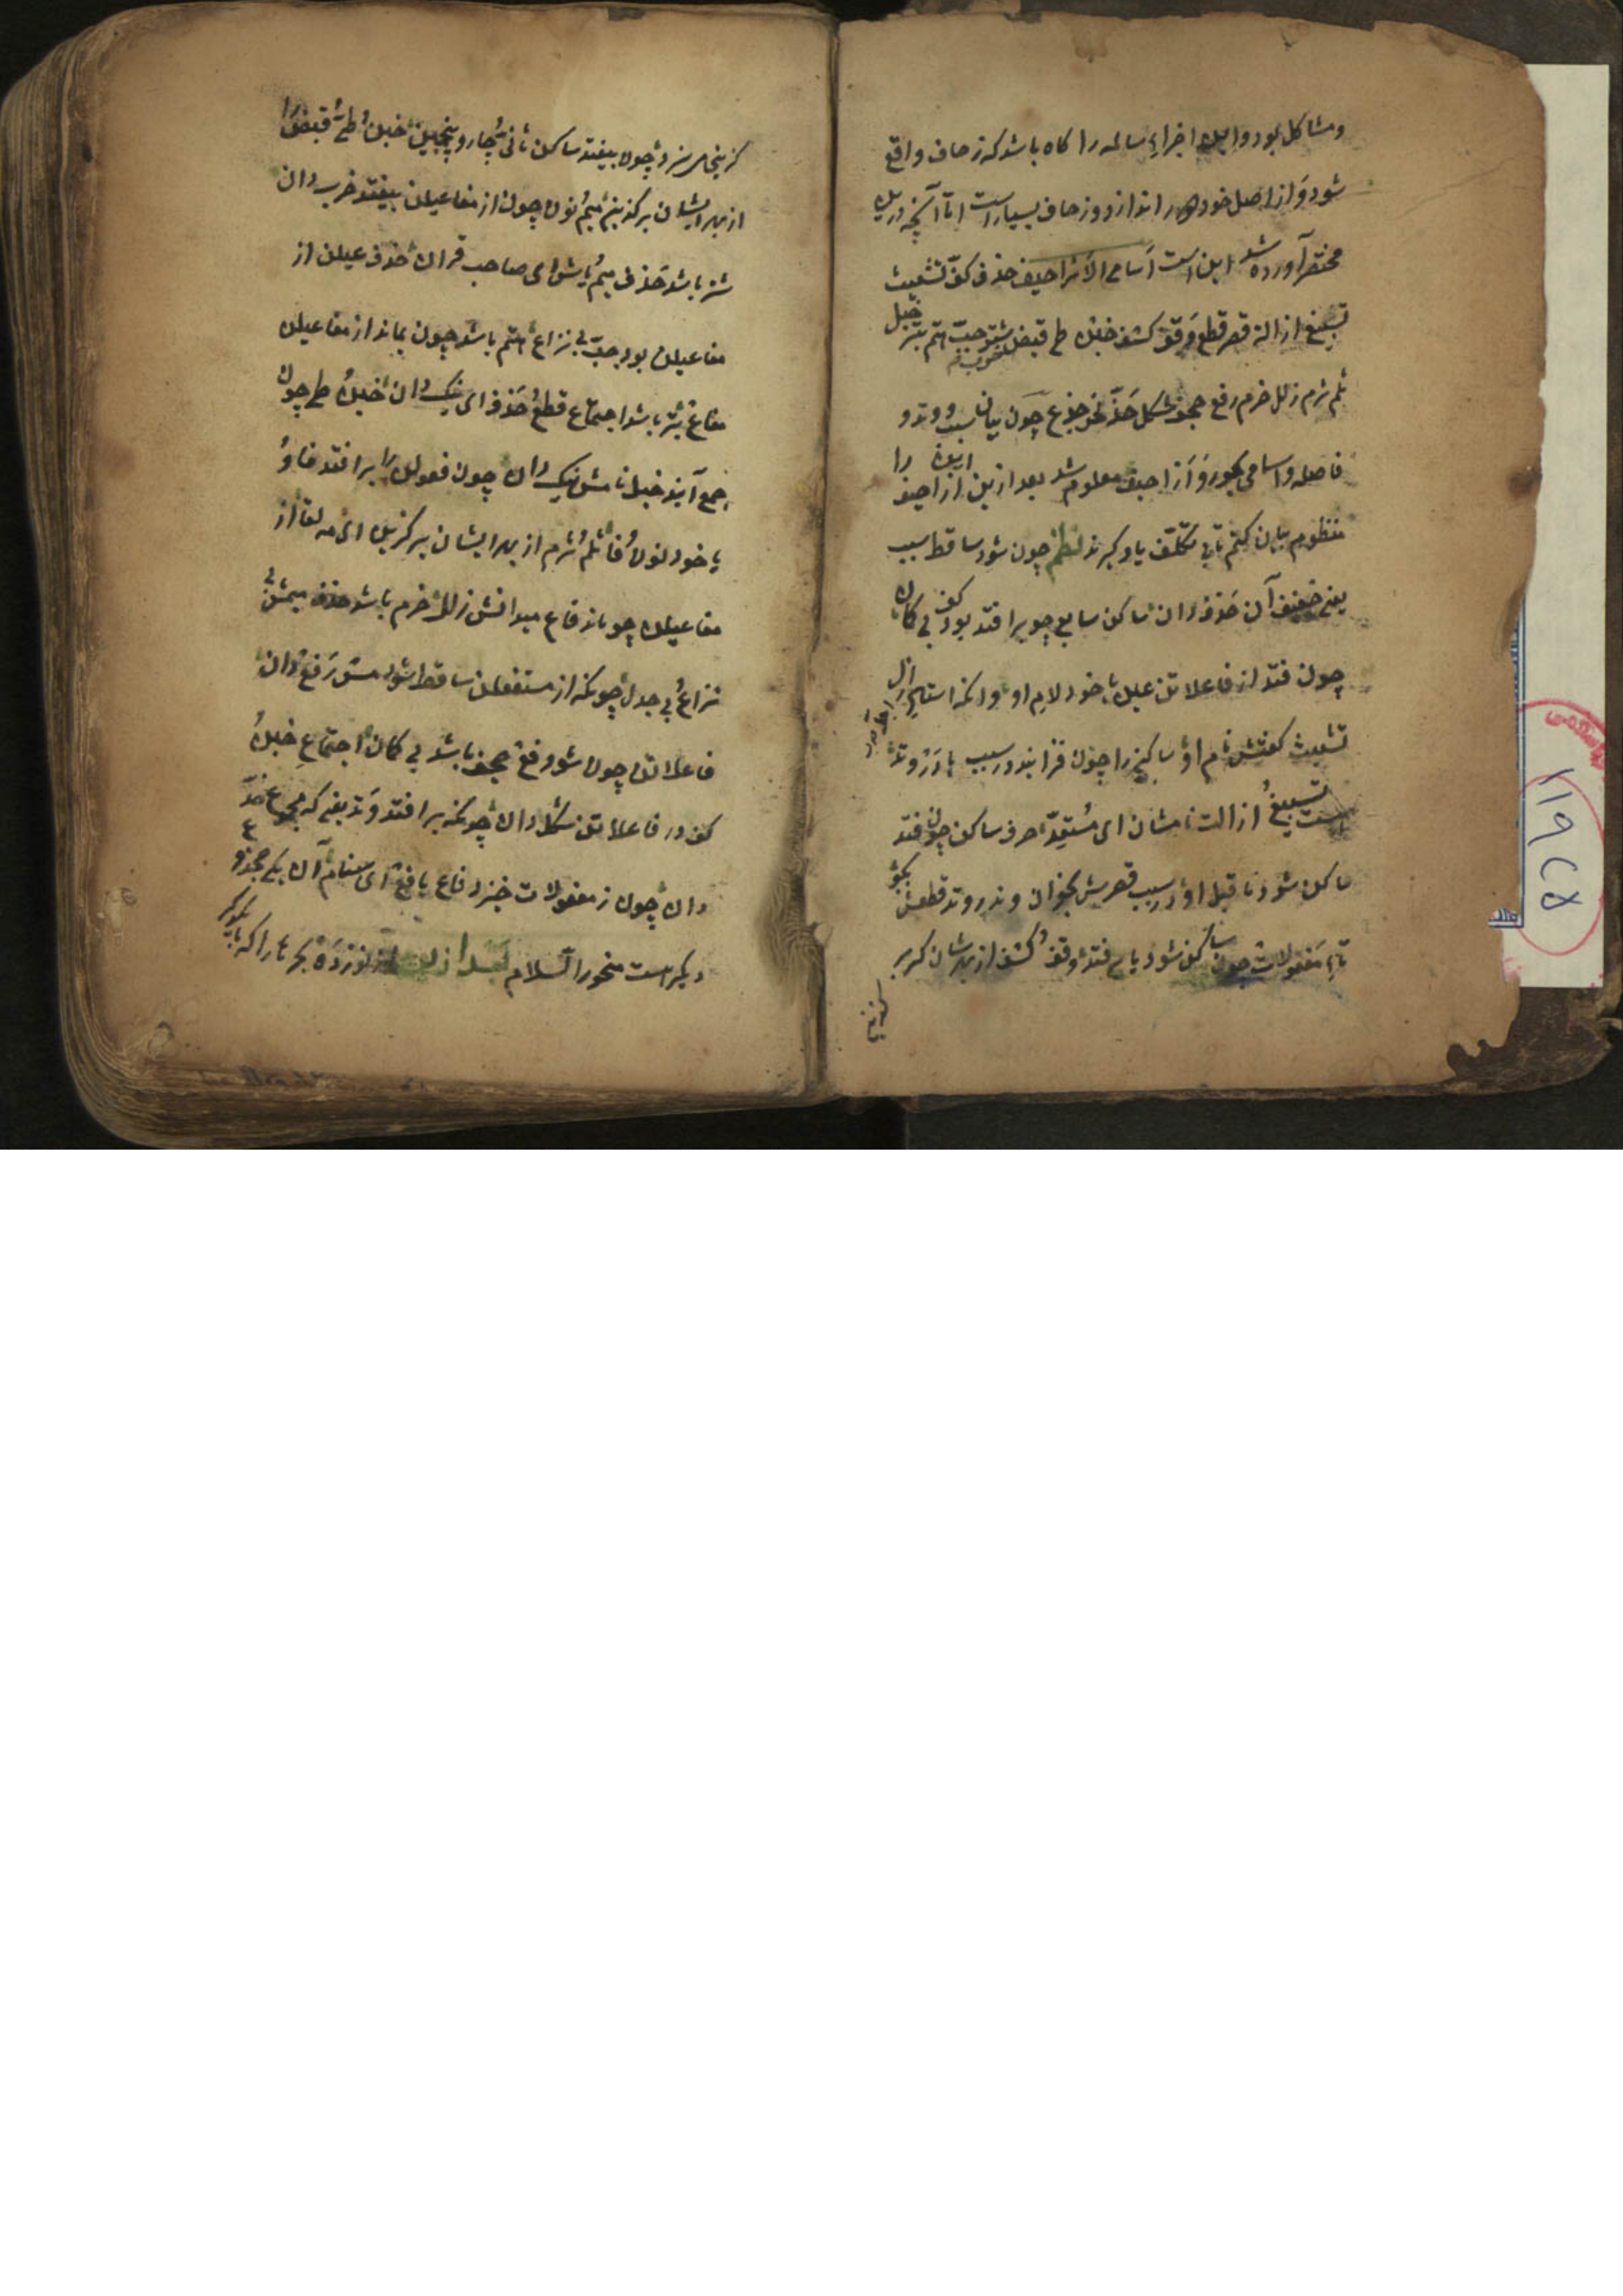 ومشاکل بود و این اجزاءِ سالمه را کاه باشد که زحاف واقع
شود و از اصل خود دور اندازد و زحاف بسیار است اما آنچه درین
مختصر آورده شد این است اسامی الازاحیف حذف کف تشعیث
تسبیغ ازالة قصر قطع وقف کشف خبن طی قبض شتر جب هتم بتر خبل
ثلم ثرم زلل خرم رفع جحف شکل حذ نحر جدع چون بیان سبب و وتد و
فاصله و اسامی بحور و ازاحیف معلوم شد بعد ازین ازاحیف را
منظوم بیان کنم تا بی تکلف یاد کیرند نظم چون شود ساقط سبب
یعنی خفیف آن حذف دان ساکن سابع چو برافتد بود کف بی کمان
چون فتد از فاعلاتن عین یا خود لام او
تشعیث کفتش نام او ساکنی را چون فزایند در سبب یا در وتد
تسبیغ ازالت نامشان ای مستعد حرف ساکن چون فتد
ساکن شود ماقبل او در سبب قصرش بخوان وندر وتد قطعش بکو
تاءِ مفعولات چون ساکن شود یا می فتد وقف و کشف از بهرشان
کزینی
چون بیفتد ساکن ثانی و چار و پنجمین خبن و طی و قبض را
از بهر ایشان برکزین میم و نون چون از مفاعیلن بیفتد خرب دان
شتر باشد حذف میم و یاش ای صاحب قران حذف عیلن از
مفاعیلن بود جب بی نزاع هتم باشد چون بماند از مفاعیلن
مفاع بتر باشد اجتماع قطع و حذف ای نیک دان خبن و طی چون
جمع آیند خبل نامش نیک دان چون فعولن را برافتد فا و
یا خود نون و فا ثلم و ثرم از بهر ایشان برکزین ای مه لقا از
مفاعیلن چو ماند فاع میدانش زلل خرم باشد حذف میمش بی
نزاع و بی جدل چونکه از مستفعلن ساقط شود مس رفع دان
فاعلاتن چون شود فع جحف باشد بی کمان اجتماع خبن و
کف در فاعلاتن شکل دان چونکه برافتد وتد یعنی که مجموع حذ
دان چون ز مفعولات خیزد فاع یا فع ای صنم نام آن یکی جدع و
دیکر است منحور السلام بعد ازین